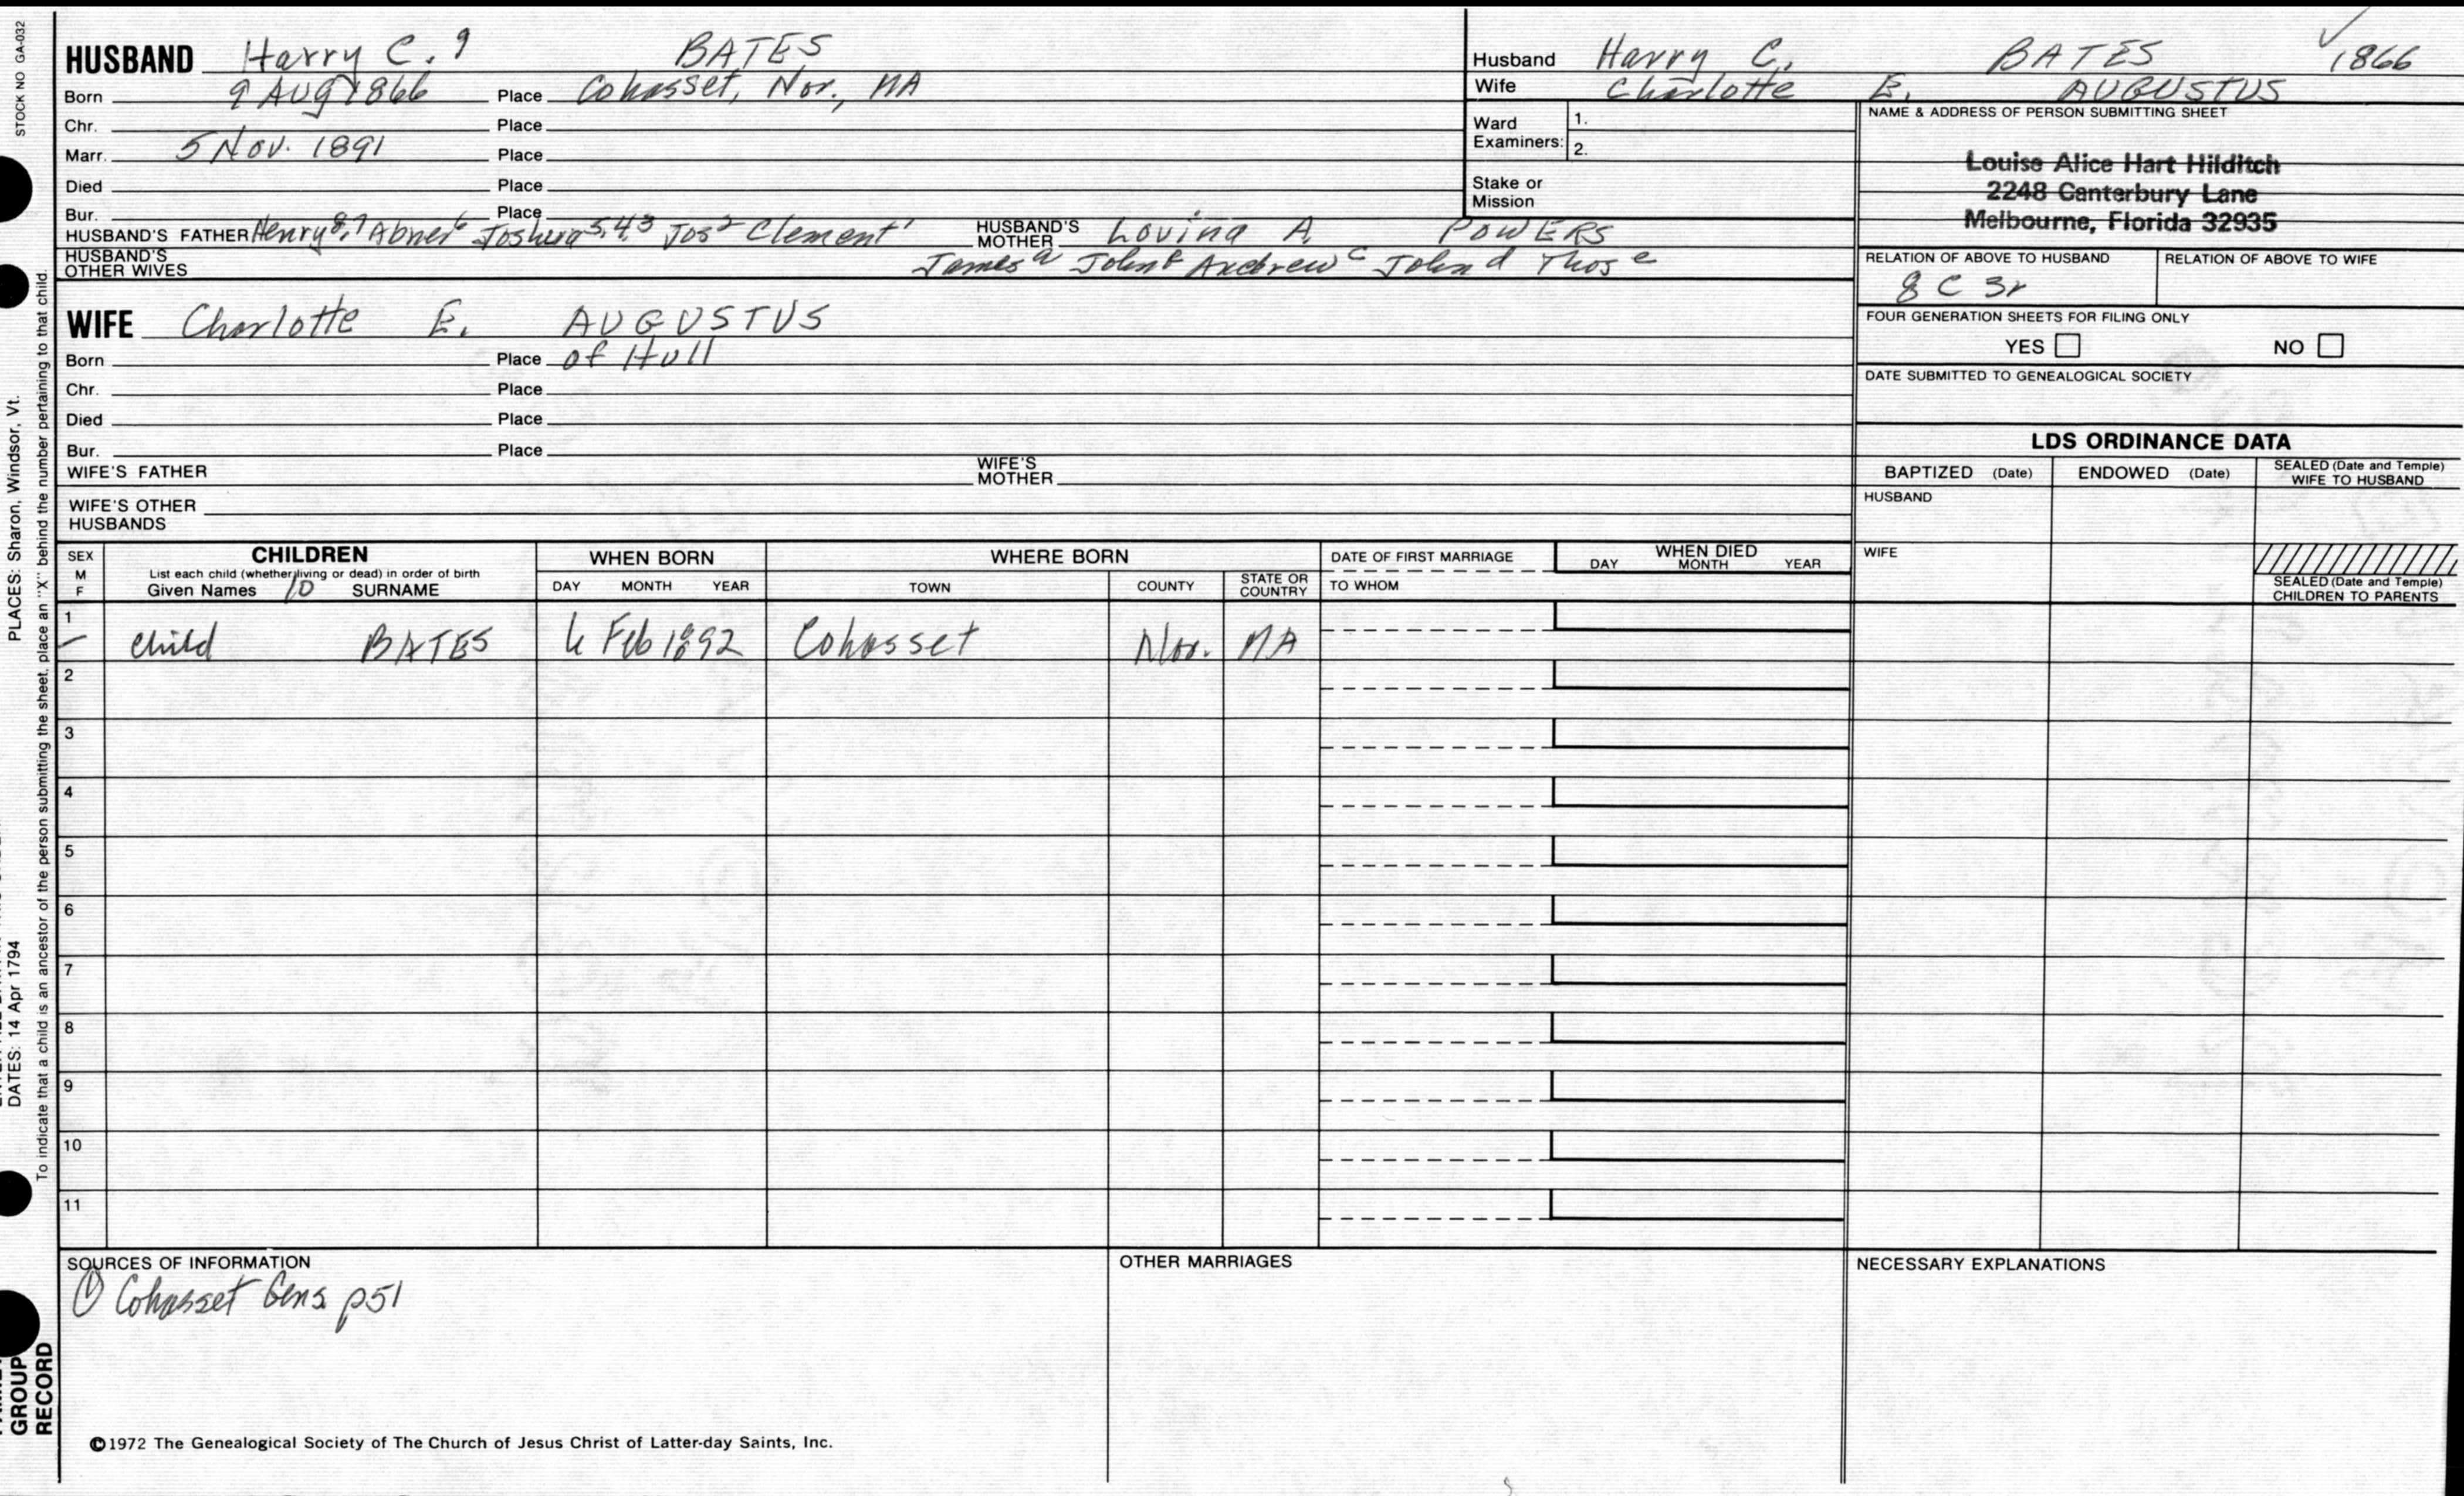 STOCK NO GA-032
HUSBAND Harry C. 9 BATES
Born 9 Aug 1866 Place Cohasset, Nor., MA
Chr. Place
Marr. 5 Nov. 1891 Place
Died Place
Bur. Place
HUSBAND'S FATHER Henry 8,7 Abner 6 Joshua 5,4,3 Jos 2 Clement 1 HUSBAND'S MOTHER Lovina A. POWERS
HUSBAND'S OTHER WIVES James a John b Andrew c John d Thos e
Husband Harry C. BATES 1866
Wife Charlotte E. AUGUSTUS
Ward Examiners: 1.
2.
Stake or Mission
NAME & ADDRESS OF PERSON SUBMITTING SHEET
Louise Alice Hart Hilditch
2248 Canterbury Lane
Melbourne, Florida 32935
RELATION OF ABOVE TO HUSBAND RELATION OF ABOVE TO WIFE
8 C 3r
FOUR GENERATION SHEETS FOR FILING ONLY
YES NO
DATE SUBMITTED TO GENEALOGICAL SOCIETY
WIFE Charlotte E. AUGUSTUS
Born Place of Hull
Chr. Place
Died Place
Bur. Place
WIFE'S FATHER WIFE'S MOTHER
WIFE'S OTHER HUSBANDS
LDS ORDINANCE DATA
BAPTIZED (Date) ENDOWED (Date) SEALED (Date and Temple) WIFE TO HUSBAND
HUSBAND
WIFE
SEALED (Date and Temple) CHILDREN TO PARENTS
SEX M F
CHILDREN
List each child (whether living or dead) in order of birth
Given Names 10 SURNAME
WHEN BORN
DAY MONTH YEAR
WHERE BORN
TOWN COUNTY STATE OR COUNTRY
DATE OF FIRST MARRIAGE
TO WHOM
WHEN DIED
DAY MONTH YEAR
1 child BATES 6 Feb 1892 Cohasset Nor. MA
2
3
4
5
6
7
8
9
10
11
SOURCES OF INFORMATION
① Cohasset Gens p51
OTHER MARRIAGES
NECESSARY EXPLANATIONS
©1972 The Genealogical Society of The Church of Jesus Christ of Latter-day Saints, Inc.
PLACES: Sharon, Windsor, Vt.
DATES: 14 Apr 1794
To indicate that a child is an ancestor of the person submitting the sheet, place an "X" behind the number pertaining to that child.
GROUP
RECORD